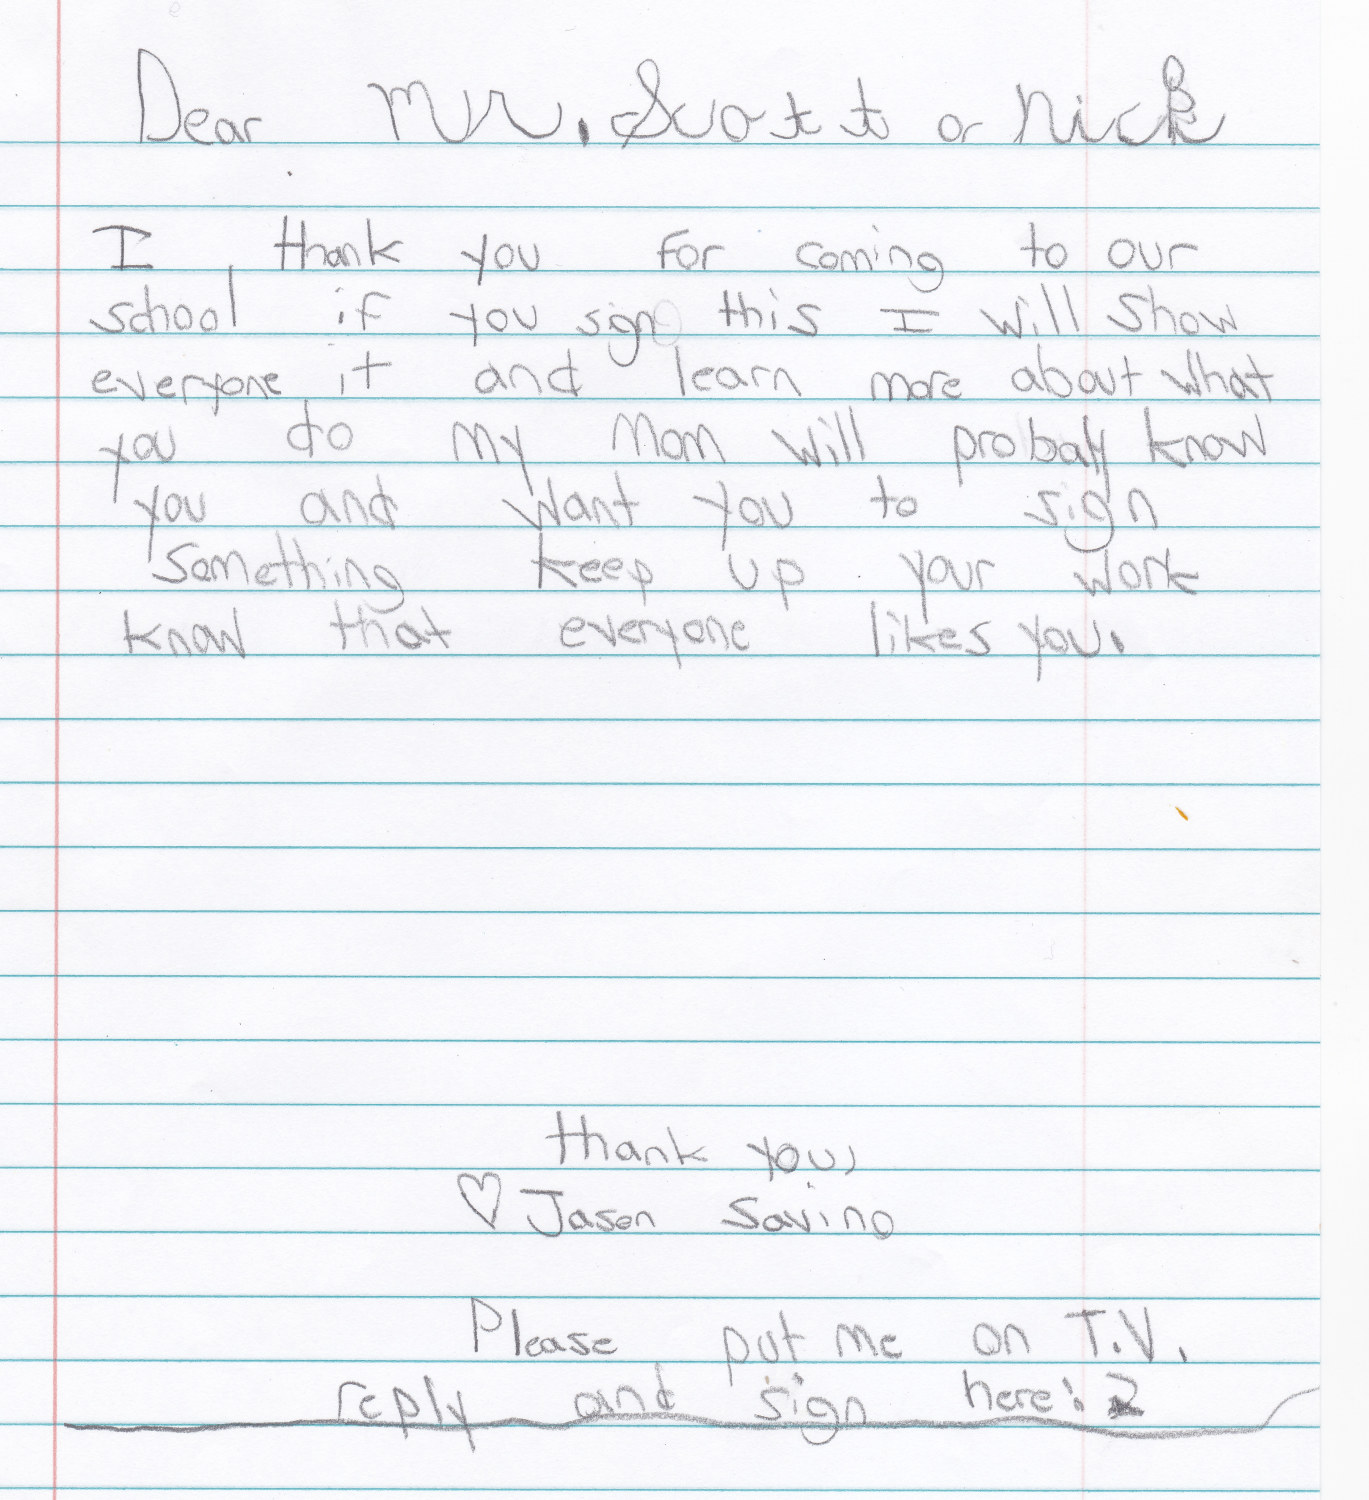 Dear Mr. Scott or Nick
I thank you for coming to our
school if you sign this I will show
everyone it and learn more about what
you do my Mom will probaly know
you and want you to sign
Something keep up your work
know that everyone likes you.
thank you,
♡ Jason Savino
Please put me on T.V.
reply and sign here: